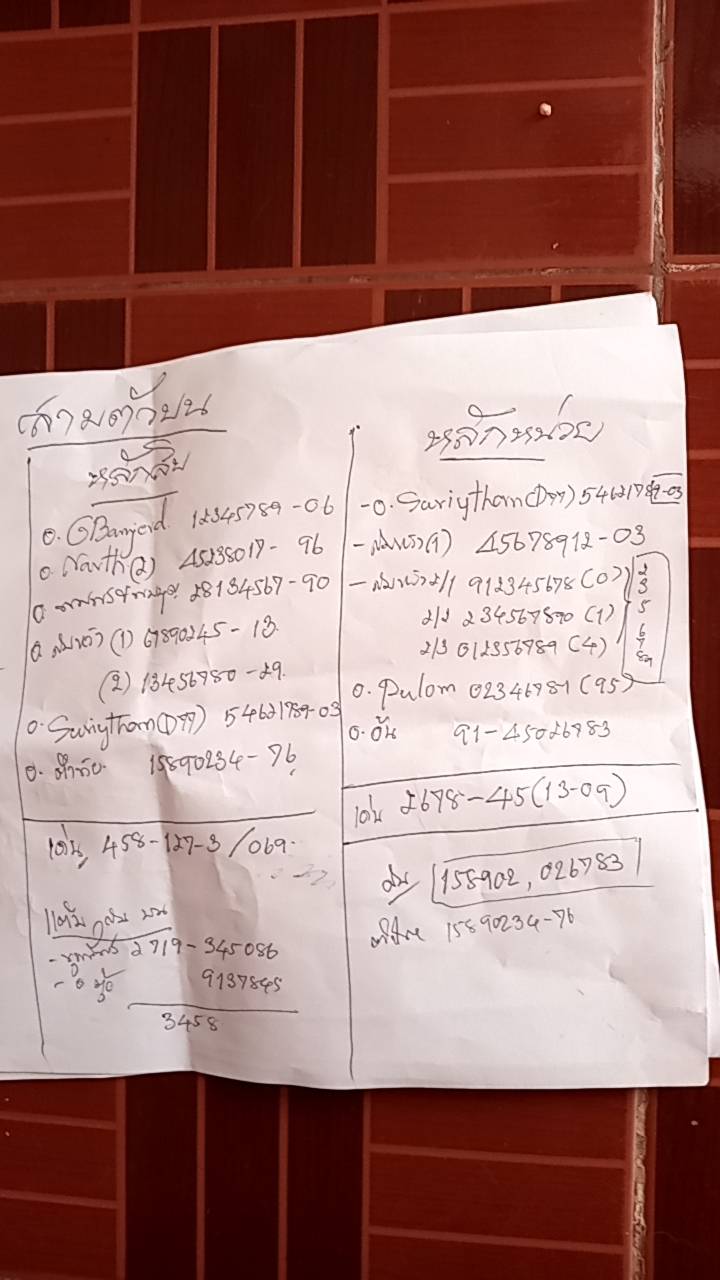 สามตัวบน
หลักสิบ
อ. GBanjerd. 12345789-06
อ. Narth(2) 45238017-96
อ. 28134567-90
อ. สมาตัว (1) 67890245-13
(2) 13456780-29
อ. Suriytham(D77) 54621789-03
อ. 15890234-76
เด่น 458-127-3/069
แต้ม บน
2719-345086
9137845
3458
หลักหน่วย
-อ. Suriytham(D77) 54621789-03
(1) 45678912-03
2/1 912345678(0)
2/2 234567890(1)
2/3 012356789(4)
2
3
5
6
7
89
อ. Pulom 02346781(95)
อ. อัน 91-45026783
เด่น 2678-45(13-09)
158902, 026783
15890234-76